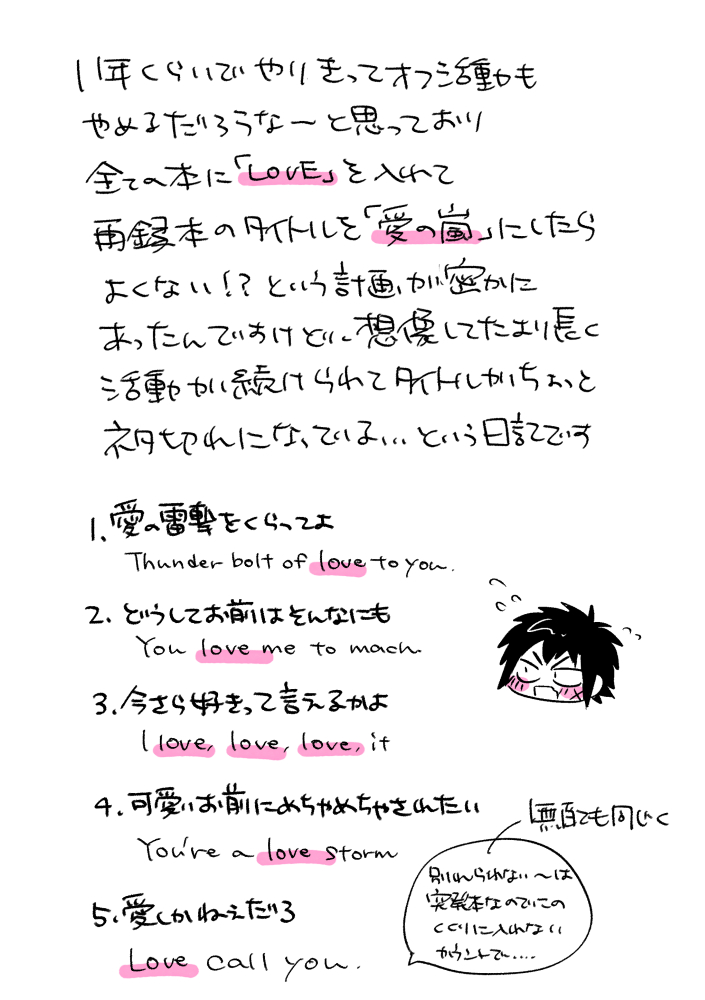 1年くらいでやりきってオフ活動も
やめるだろうな〜と思っており
全ての本に「LOVE」を入れて
再録本のタイトルを「愛の嵐」にしたら
よくない!?という計画が密かに
あったんですけども、想像してたより長く
活動が続けられてタイトルがちょっと
ネタ切れになっている...という日記です
1.愛の雷撃をくらってよ
Thunder bolt of love to you.
2.どうしてお前はそんなにも
You love me to mach
3.今さら好きって言えるかよ
I love, love, love, it
4.可愛いお前にめちゃめちゃされたい
You're a love storm
無配でも同じく
5.愛しかねぇだろ
Love call you.
別れられない〜は
突発本なのでこの
くくりに入れない
カウントで....